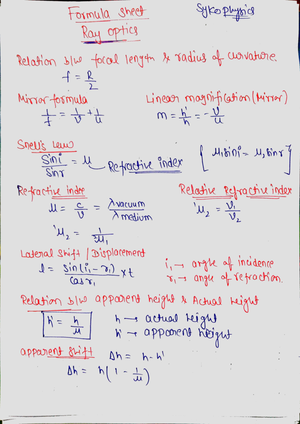 Formula sheet
Sykophysics
Ray optics
Relation b/w focal length & radius of curvature
f = R/2
Mirror formula
1/f = 1/v + 1/u
Linear magnification (Mirror)
m = h'/h = -v/u
Snell's Law
sin i / sin r = μ → Refractive index
{ μ₁ sin i = μ₂ sin r }
Refractive index
μ = c/v = λvacuum/λmedium
¹μ₂ = 1/²μ₁
Relative Refractive index
¹μ₂ = v₁/v₂
Lateral Shift / Displacement
l = sin(i₁ - r₁)/cos r₁ × t
i₁ → angle of incidence
r₁ → angle of refraction.
Relation b/w apparent height & Actual height
h' = h/μ
h → actual height
h' → apparent height
apparent shift Δh = h - h'
Δh = h(1 - 1/μ)